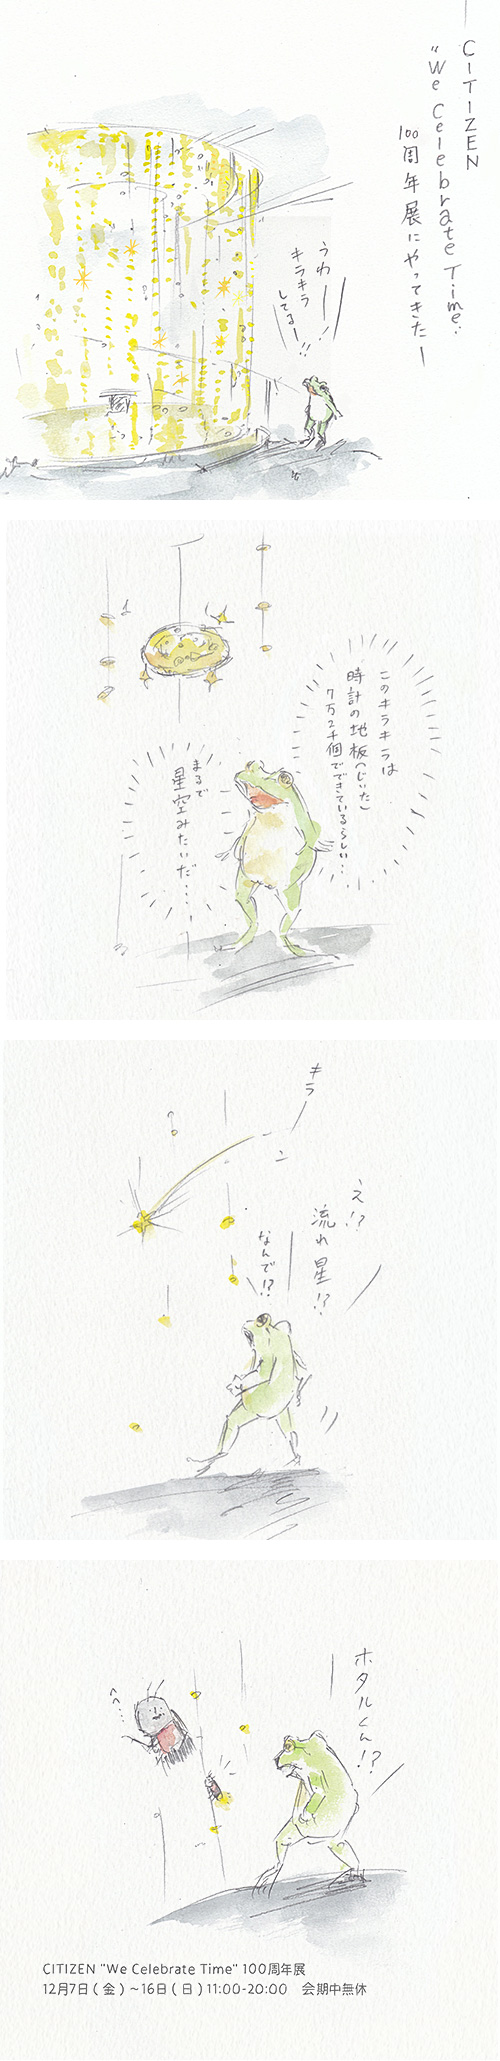 CITIZEN
"We Celebrate Time"
100周年展にやってきたー
うわーー
キラキラ
してるー!!
このキラキラは
時計の地板(じいた)
7万2千個でできているらしい…
まるで
星空みたいだ・・・・
キラ
え!?
流れ星!?
なんで!?
ホタルくん!?
へへ…
CITIZEN "We Celebrate Time" 100周年展
12月7日(金)~16日(日)11:00-20:00 会期中無休